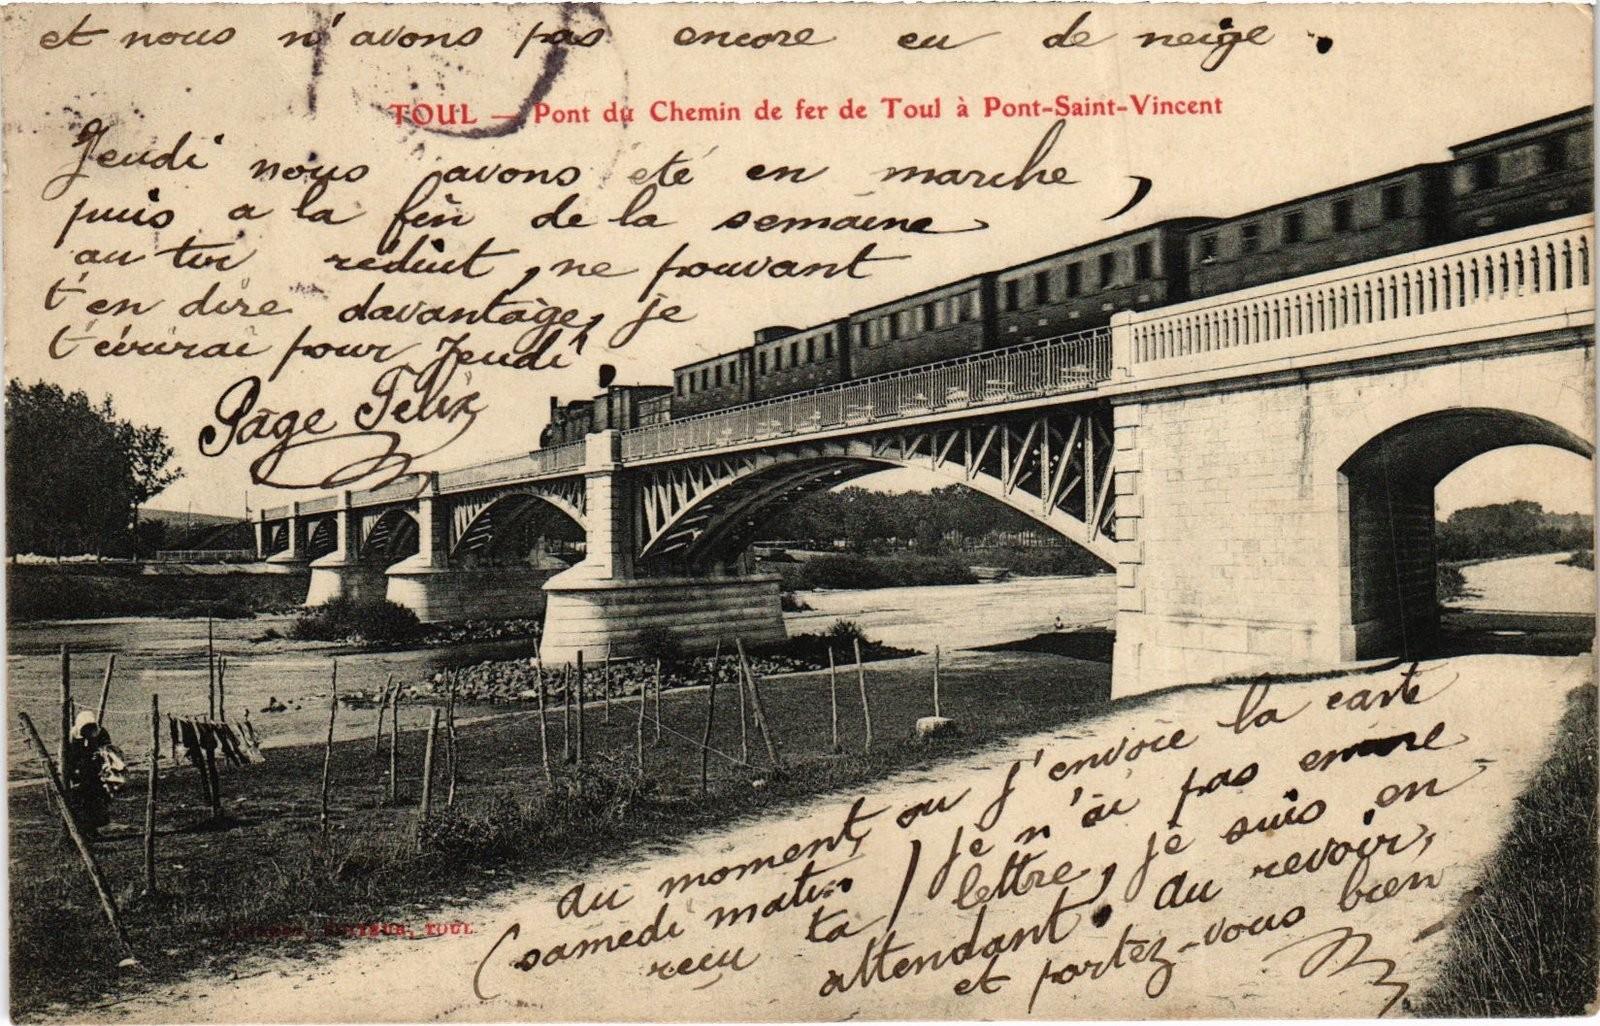 et nous n'avons pas encore eu de neige.
TOUL — Pont du Chemin de fer de Toul à Pont-Saint-Vincent
Jeudi nous avons eté en marche,
puis a la fin de la semaine
au tir reduit, ne pouvant
t'en dire davantage, je
t'écrirai pour Jeudi
Page Felix
au moment, ou j'envoie la carte
(samedi matin) je n'ai pas encore
reçu ta lettre, je suis en
attendant, au revoir,
et portez-vous bien
EDITEUR, TOUL